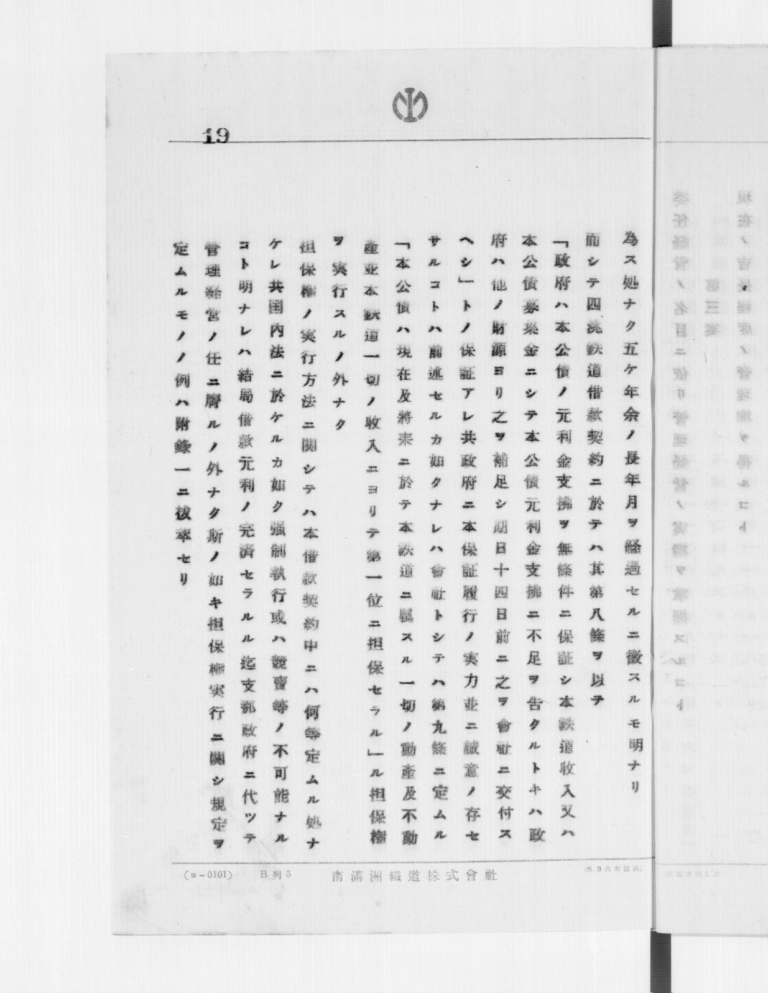 19
為ス処ナク五ケ年余ノ長年月ヲ経過セルニ徴スルモ明ナリ
而シテ四洮鉄道借款契約ニ於テハ其第八條ヲ以テ
「政府ハ本公債ノ元利金支拂ヲ無條件ニ保証シ本鉄道収入又ハ
本公債募集金ニシテ本公債元利金支拂ニ不足ヲ告クルトキハ政
府ハ他ノ財源ヨリ之ヲ補足シ期日十四日前ニ之ヲ會社ニ交付ス
ヘシ」トノ保証アレ共政府ニ本保証履行ノ実力並ニ誠意ノ存セ
サルコトハ前述セルカ如クナレハ會社トシテハ第九條ニ定ムル
「本公債ハ現在及将来ニ於テ本鉄道ニ属スル一切ノ動產及不動
產並本鉄道一切ノ收入ニヨリテ第一位ニ担保セラル」ル担保権
ヲ実行スルノ外ナク
担保権ノ実行方法ニ関シテハ本借款契約中ニハ何等定ムル処ナ
ケレ共国内法ニ於ケルカ如ク强制執行或ハ競賣等ノ不可能ナル
コト明ナレハ結局借款元利ノ完済セラルル迄支那政府ニ代ツテ
管理経営ノ任ニ膺ルノ外ナク斯ノ如キ担保権実行ニ関シ規定ヲ
定ムルモノノ例ハ附錄一ニ抜萃セリ
(ヨ-0101) B列5 南滿洲鐵道株式會社